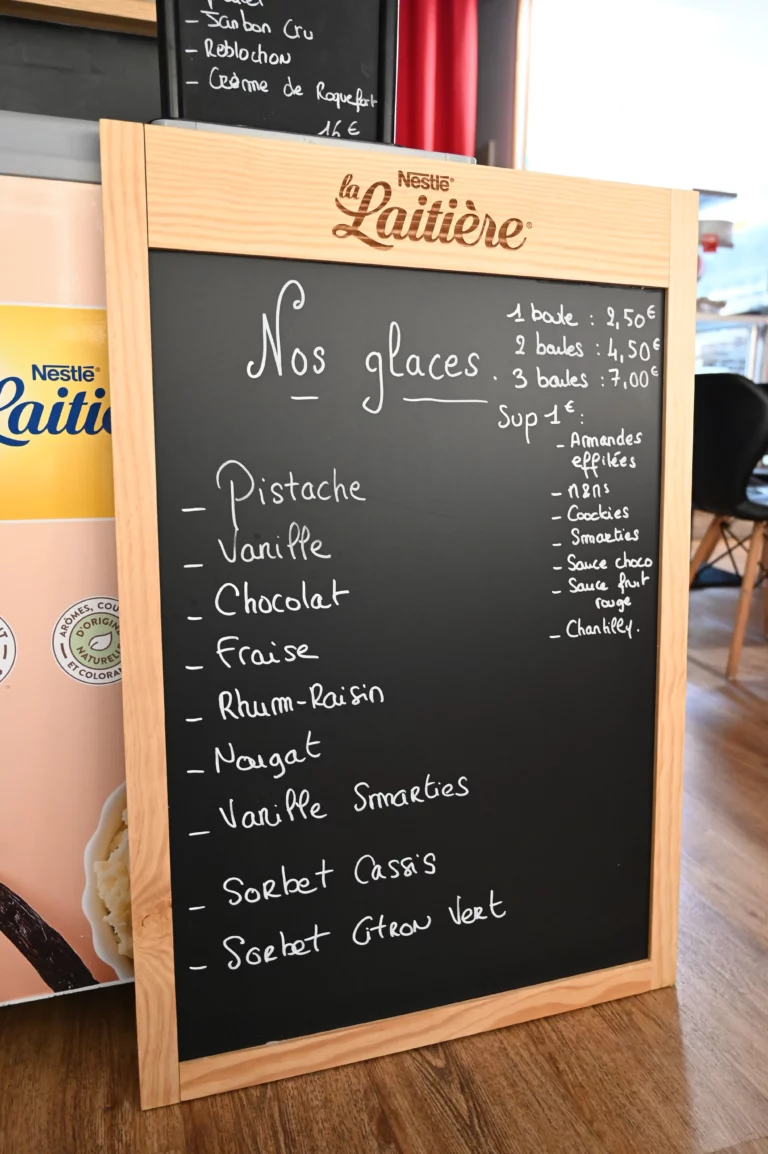 - Jambon Cru
- Reblochon
- Crème de Roquefort
16 €
Nestlé
la Laitière
Nos glaces.
1 boule : 2,50€
2 boules : 4,50€
3 boules : 7,00€
Sup 1€ :
- Amandes
effilées
- m&ms
- Coockies
- Smarties
- Sauce choco
- Sauce fruit
rouge
- Chantilly.
- Pistache
- Vanille
- Chocolat
- Fraise
- Rhum-Raisin
- Nougat
- Vanille Smarties
- Sorbet Cassis
- Sorbet Citron Vert
Nestlé
Laitiè
ARÔMES, COU
D'ORIGINE
NATURELLE
ET COLORAN